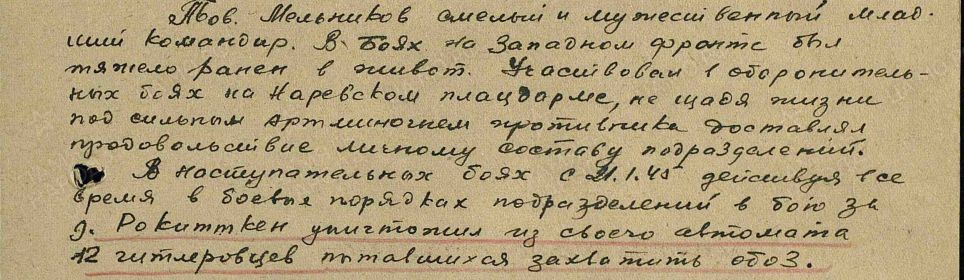 Тов. Мельников смелый и мужественный млад-
ший командир. В боях на Западном фронте был
тяжело ранен в живот. Участвовал в оборонитель-
ных боях на Наревском плацдарме, не щадя жизни
под сильным артминогнем противника доставлял
продовольствие личному составу подразделений.
В наступательных боях с 21.1.45 действуя все
время в боевых порядках подразделений в бою за
д. Рокиткен уничтожил из своего автомата
12 гитлеровцев пытавшихся захватить обоз.